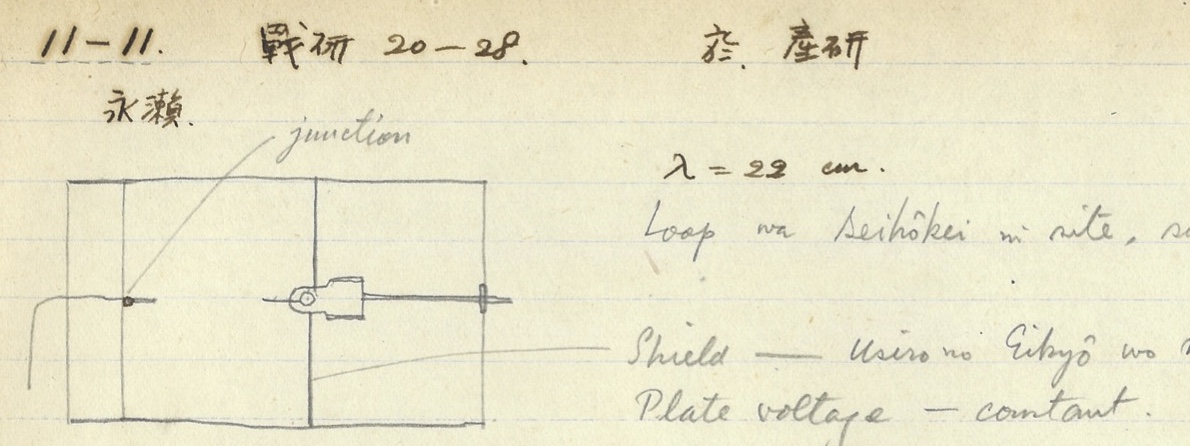 11-11. 戰研 20-28. 於. 産研
永瀬.
junction
λ = 22 cm.
Loop wa seihôkei ni site,
Shield — Usiro no Eikyô wo
Plate voltage — constant.